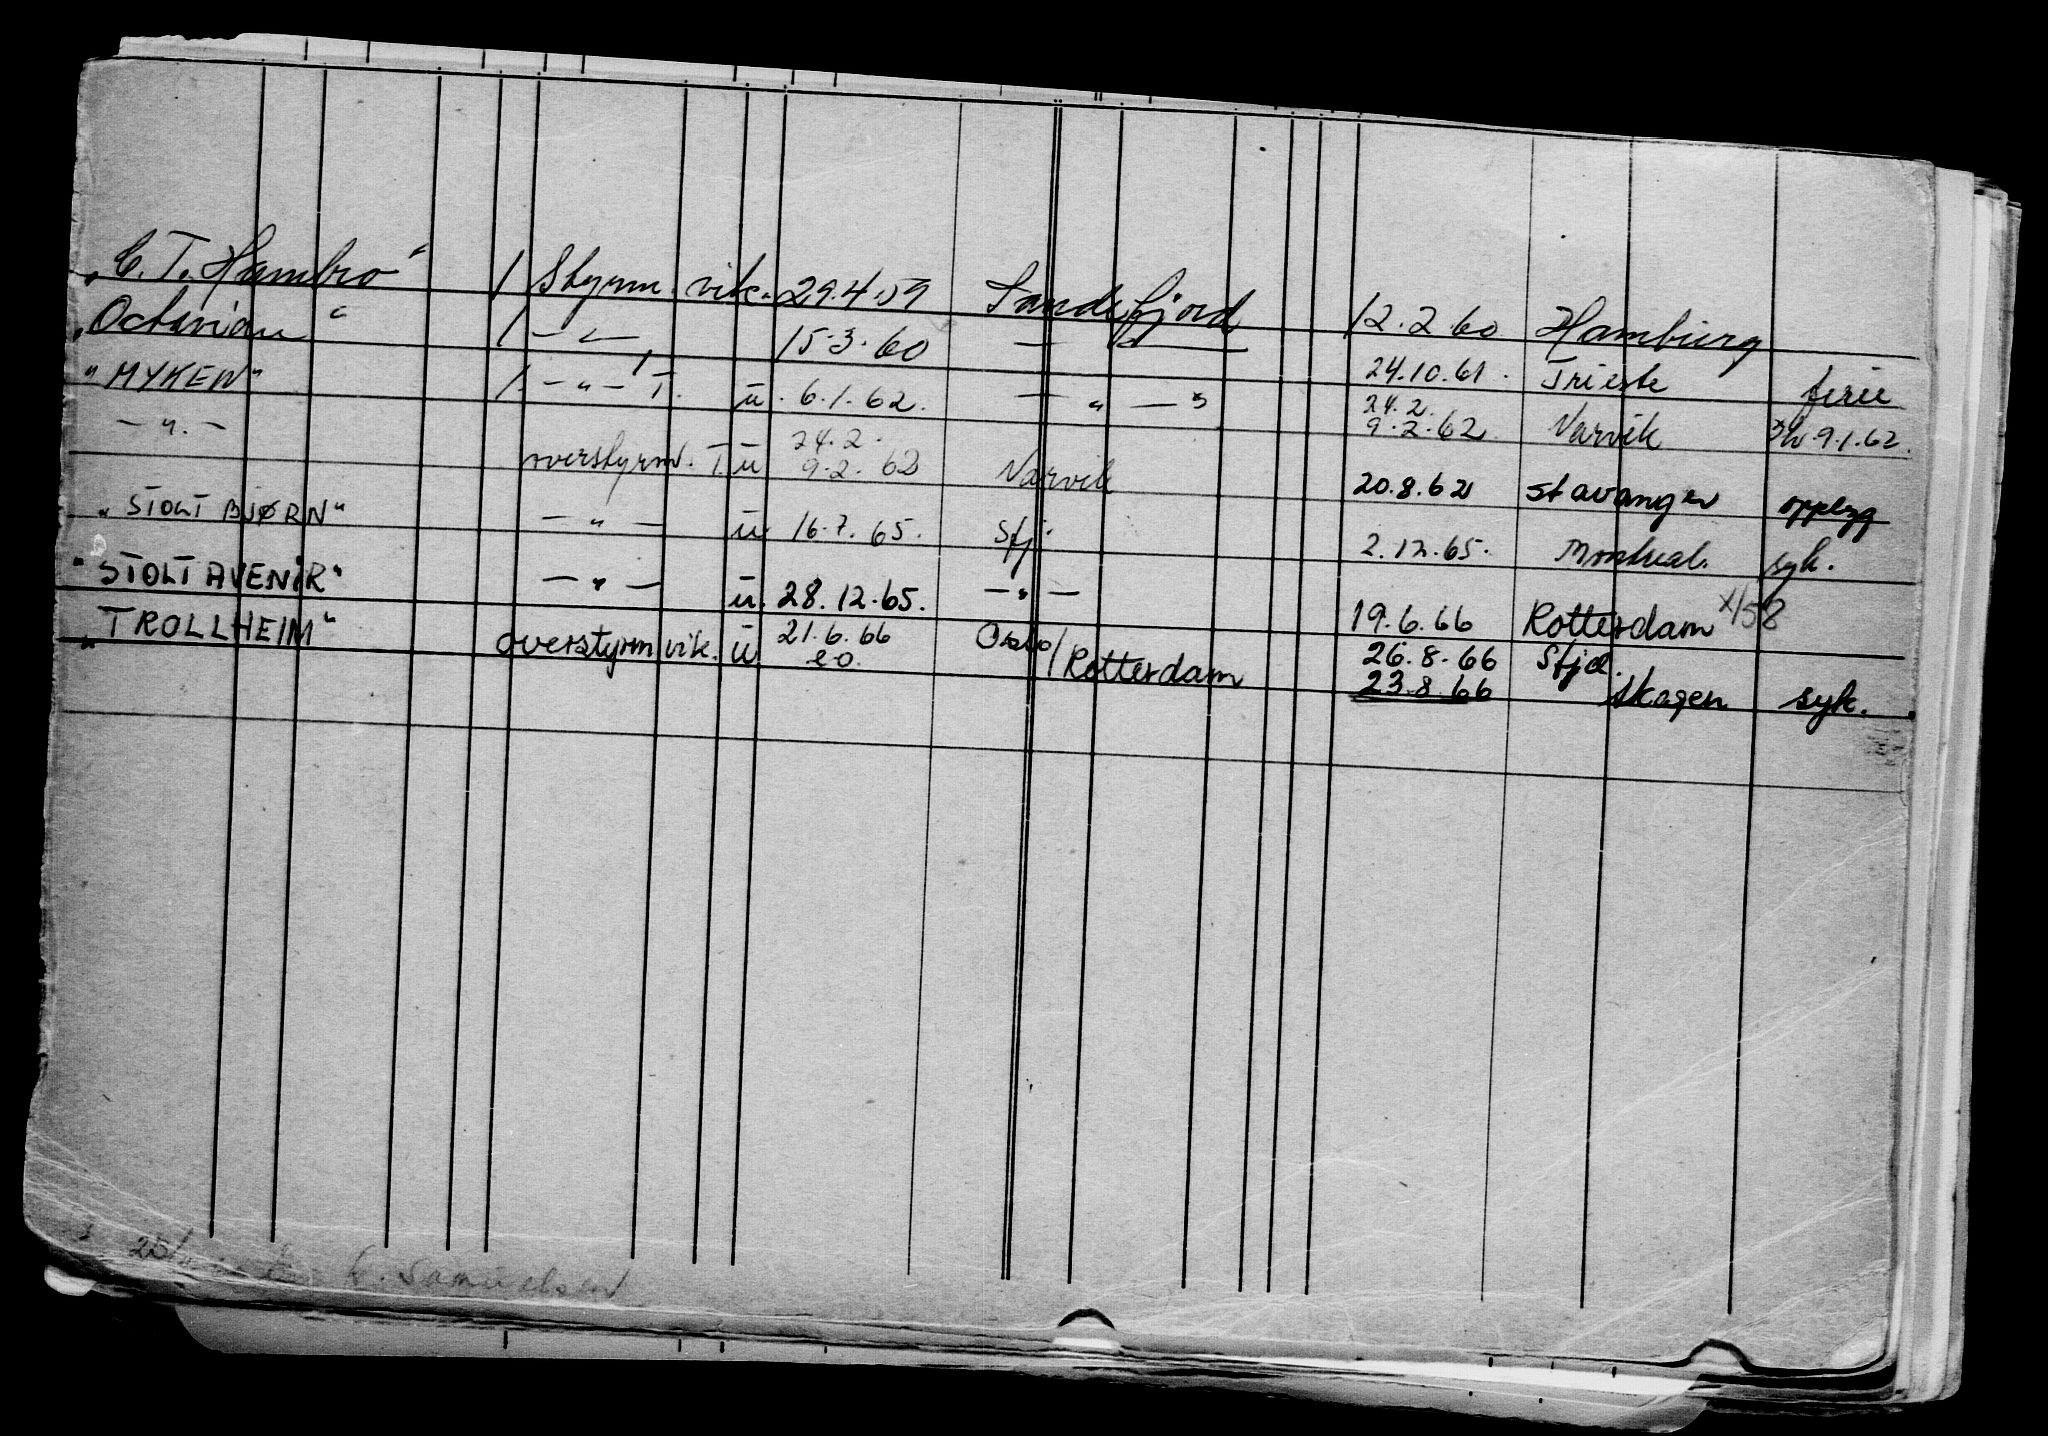 „C. T. Hambro“ 1 Styrm. vik. 29.4.59 Sandefjord 12.2.60 Hamburg
„Octavian“ 1 — " — 15.3.60 — " — 24.10.61. Trieste ferie
„MYKEN“ 1. — " — T. ü. 6.1.62. — " — 24.2. 9.2.62. Narvik 9.1.62.
— " — overstyrm. T. ü 24.2. 9.2.62 Narvik 20.8.62 Stavanger opplegg
„STOLT BJØRN“ — " — ü. 16.7.65. Sfj. 2.12.65. Montreal. syk.
"STOLT AVENIR" — " — ü. 28.12.65. — " — 19.6.66 Rotterdam X/58
„TROLLHEIM“ overstyrm vik. ü 21.6.66 Oslo/Rotterdam 26.8.66 Sfjd.
20. 23.8.66 Skagen syk.
Samuelsen